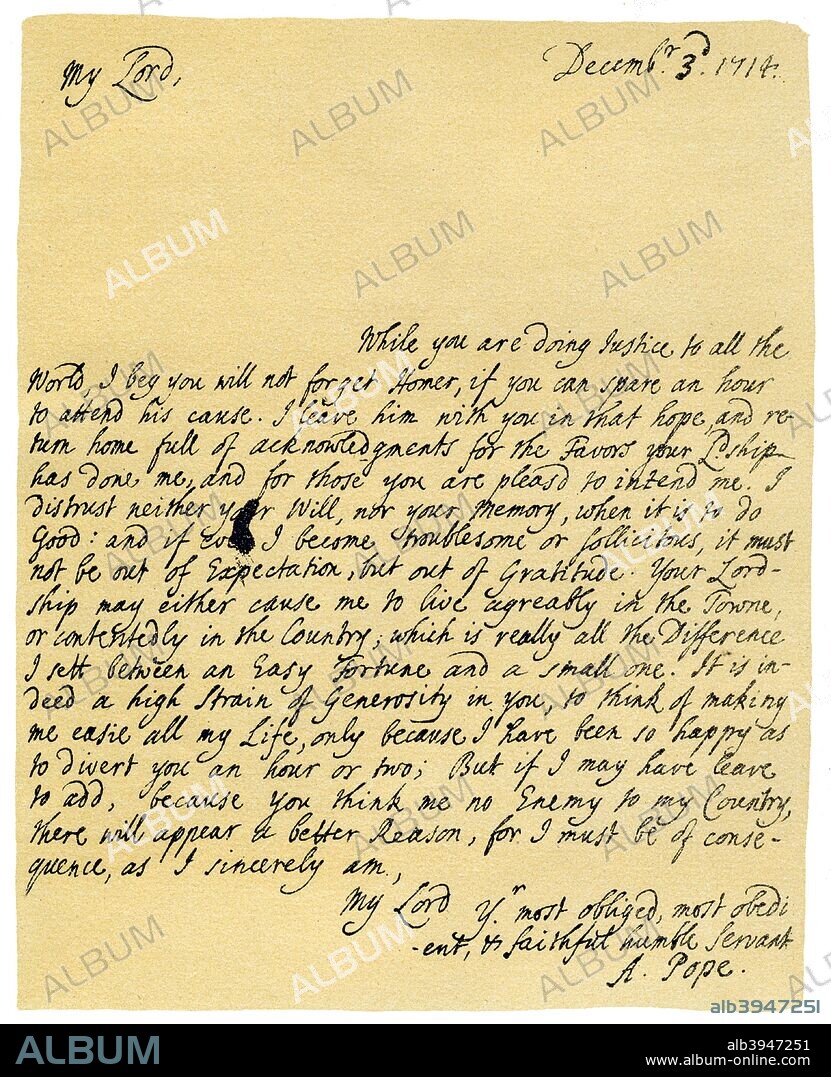 My Lord,
Decemb.r 3.d 1714.
While you are doing Justice to all the
World I beg you will not forget Homer, if you can spare an hour
to attend his cause. I leave him with you in that hope, and re-
turn home full of acknowledgments for the Favors your Ld.ship
has done me, and for those you are pleasd to intend me. I
distrust neither your Will, nor your Memory, when it is to do
Good: and if ever I become troublesome or sollicitous, it must
not be out of Expectation, but out of Gratitude. Your Lord-
ship may either cause me to live agreably in the Towne,
or contentedly in the Country; which is really all the Difference
I sett between an Easy Fortune and a small one. It is in-
deed a high Strain of Generosity in you, to think of making
me easie all my Life, only because I have been so happy as
to divert you an hour or two; But if I may have leave
to add, because you think me no Enemy to my Country,
there will appear a better Reason, for I must be of conse-
quence, as I sincerely am,
My Lord Y.r most obliged, most obedi
-ent, & faithful humble Servant
A. Pope.
ALBUM
alb3947251
ALBUM
alb3947251
www.album-online.com